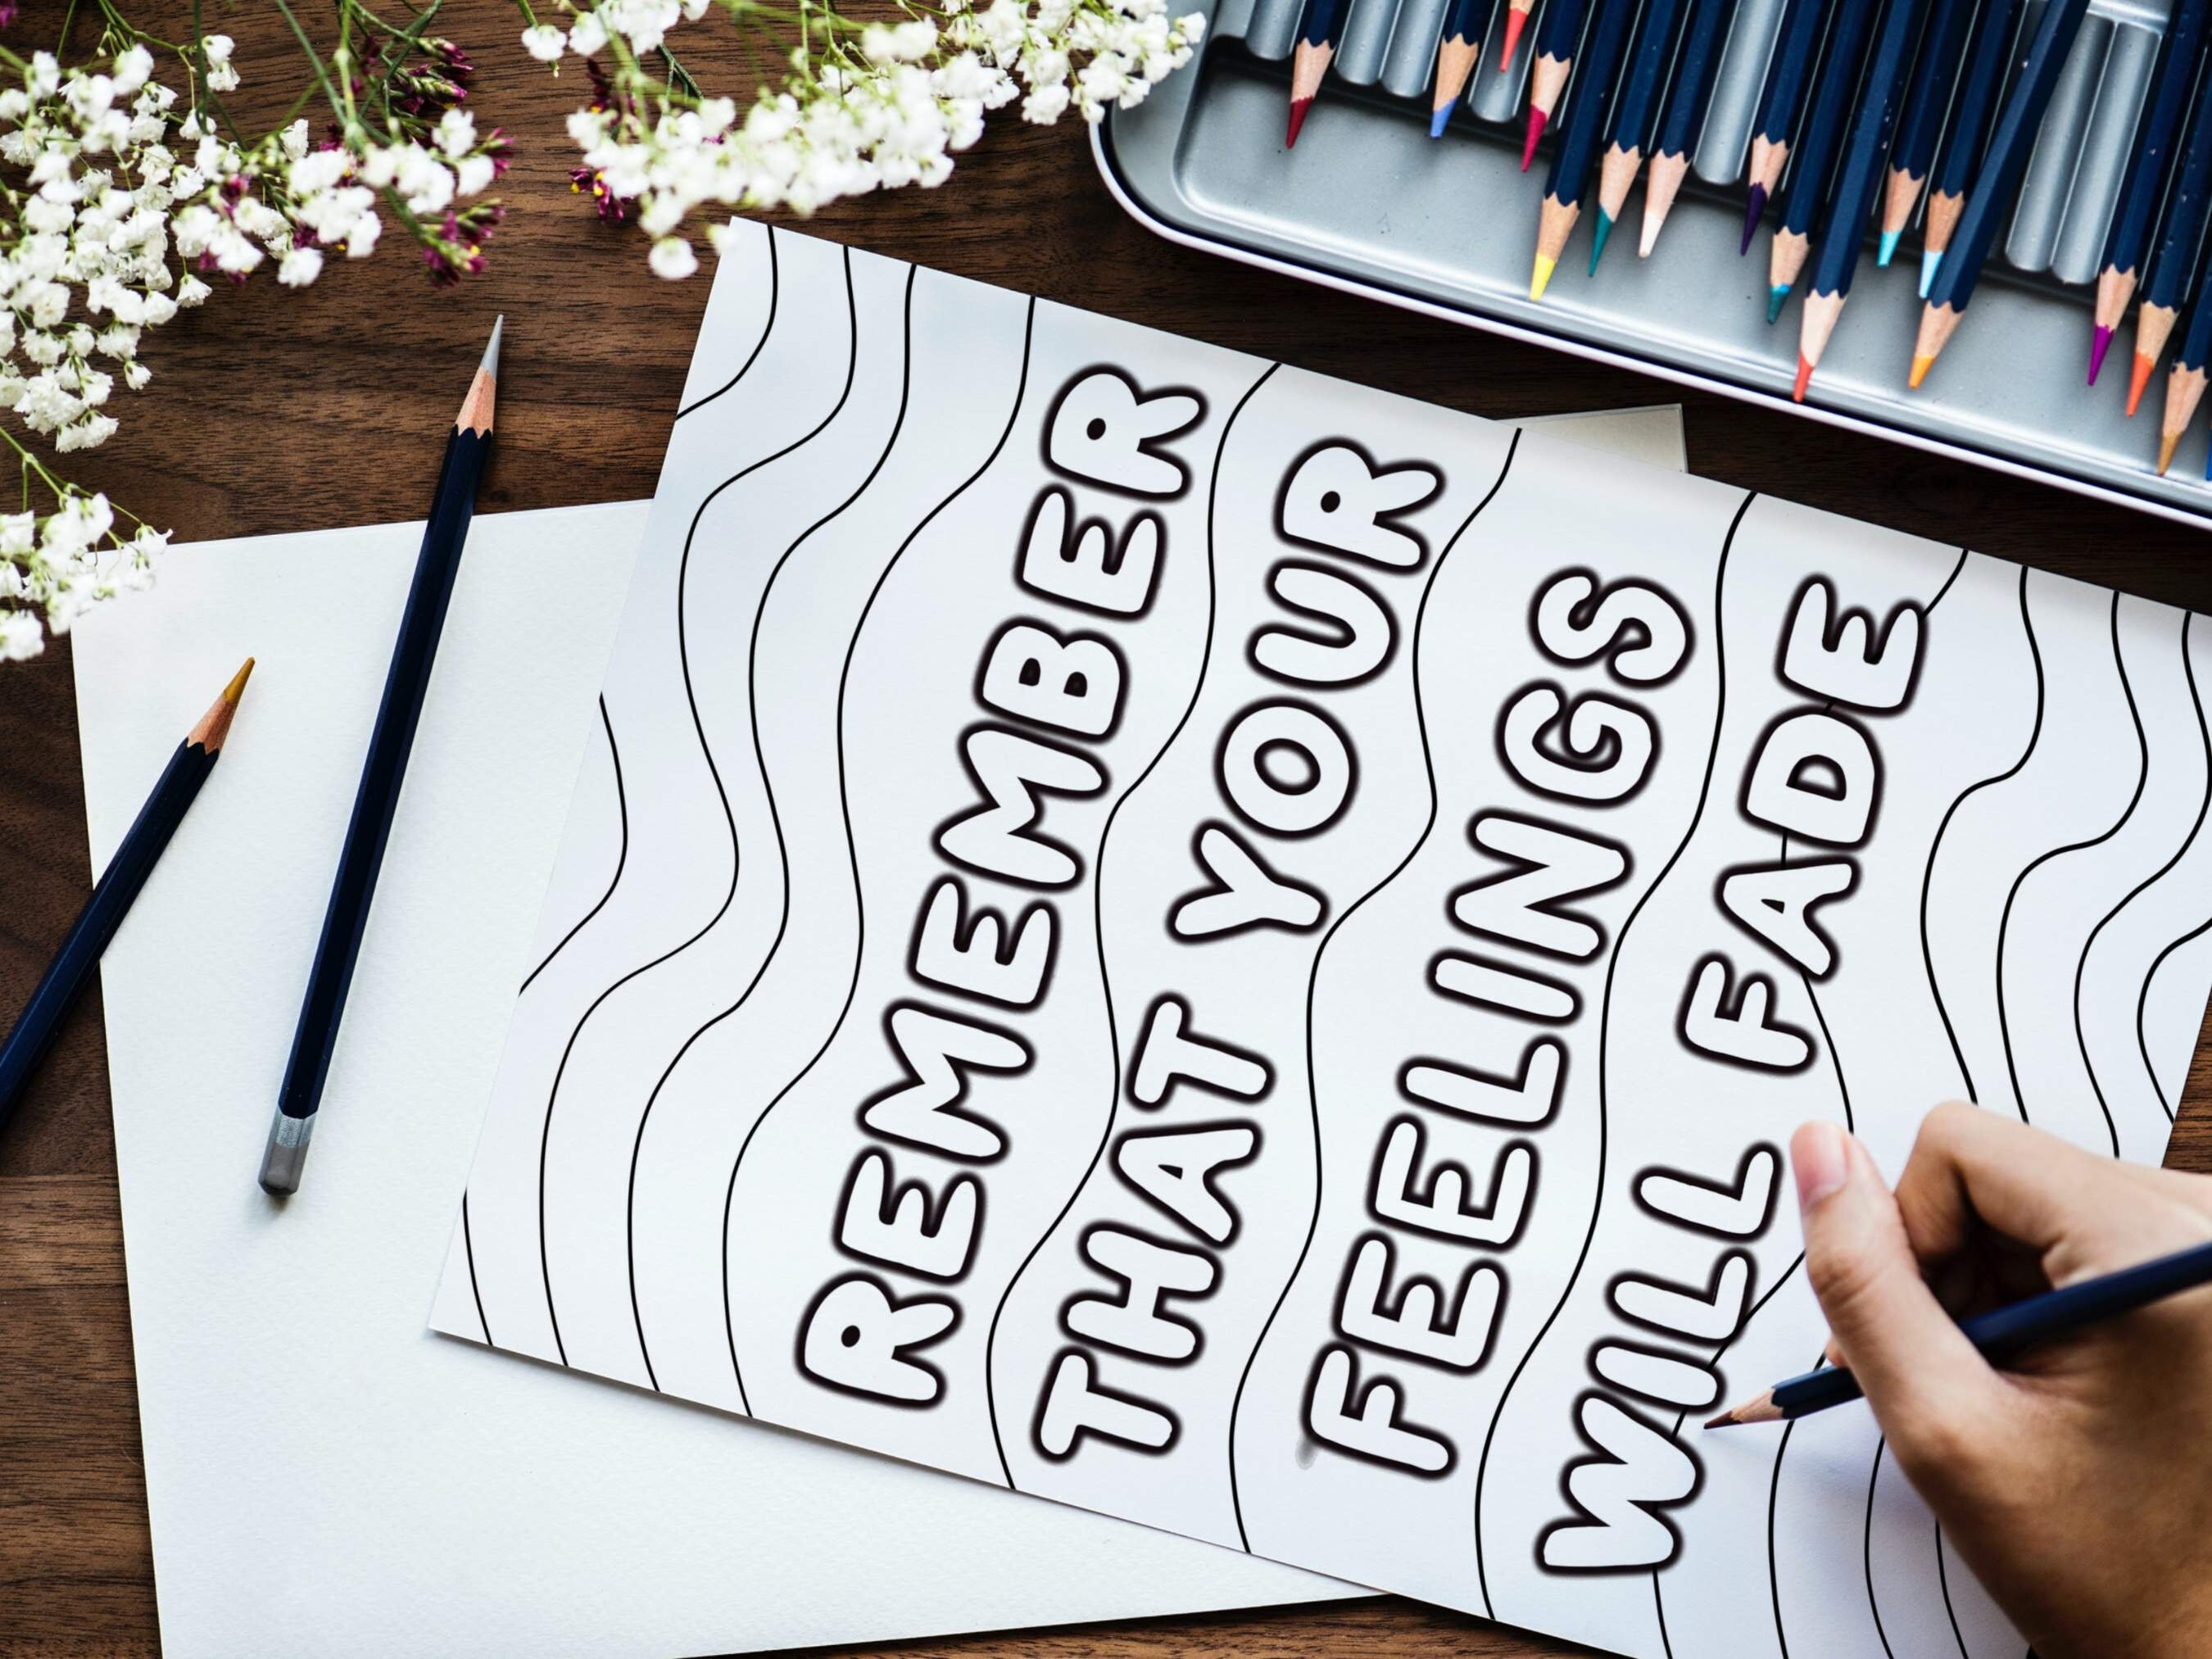 REMEMBER
THAT YOUR
FEELINGS
WILL FADE